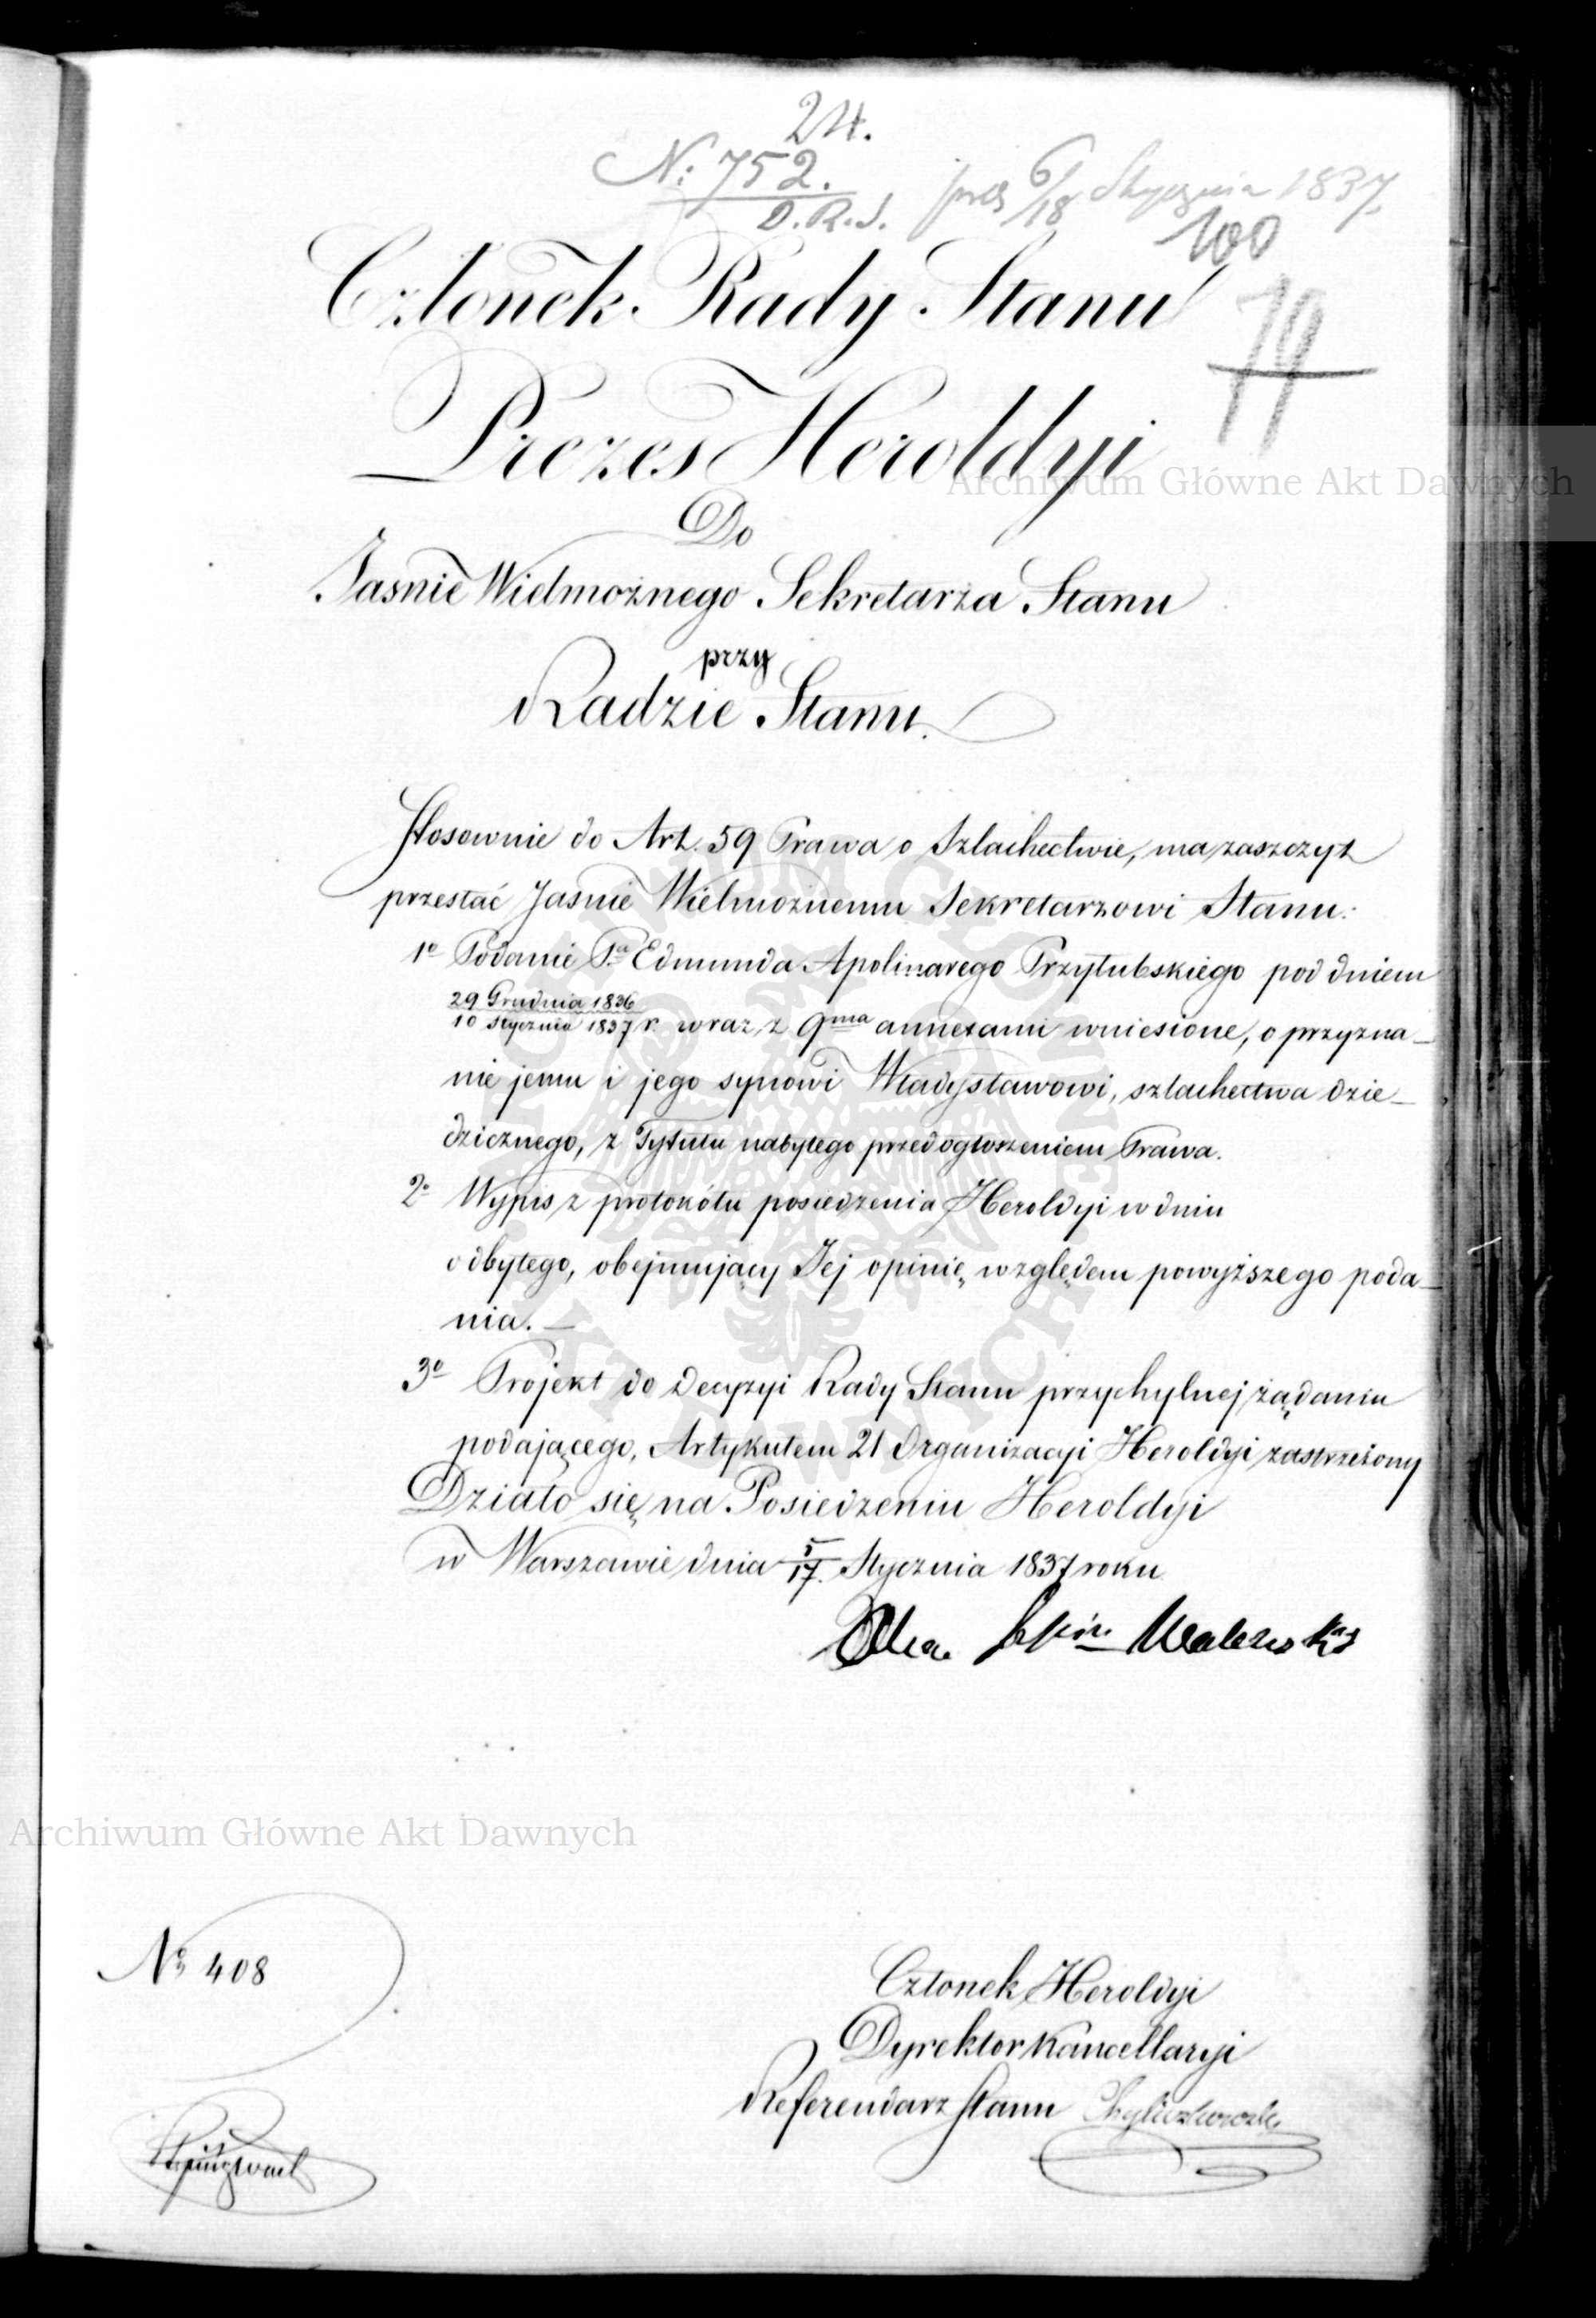 24.
N: 752.
D.R.S.
prez 6/18 Stycznia 1837.
100
Członek Rady Stanu
Prezes Heroldyi
Do
Jaśnie Wielmożnego Sekretarza Stanu
przy
Radzie Stanu.
Stosownie do Art. 59 Prawa o Szlachectwie, ma zaszczyt
przesłać Jaśnie Wielmożnemu Sekretarzowi Stanu:
1o Podanie Pa Edmunda Apolinarego Przyłubskiego pod dniem
29 Grudnia 1836
10 stycznia 1837 r. wraz z 9ma annexami wniesione, o przyzna_
nie jemu i jego synowi Władysławowi, szlachectwa dzie_
dzicznego, z Tytułu nabytego przed ogłoszeniem Prawa.
2o Wypis z protokółu posiedzenia Heroldyi w dniu
odbytego, obejmujący Jej opinię, względem powyższego poda_
nia._
3o Projekt do Decyzyi Rady Stanu przychylnej żądaniu
podającego, Artykułem 21 Organizacyi Heroldyi zastrzeżony
Działo się na Posiedzeniu Heroldyi
w Warszawie dnia 5/17. Stycznia 1837 roku
Walewski
No 408
Członek Heroldyi
Dyrektor Kancellaryi
Referendarz Stanu
Archiwum Główne Akt Dawnych
Archiwum Główne Akt Dawnych
ARCHIWUM GŁÓWNE AKT DAWNYCH